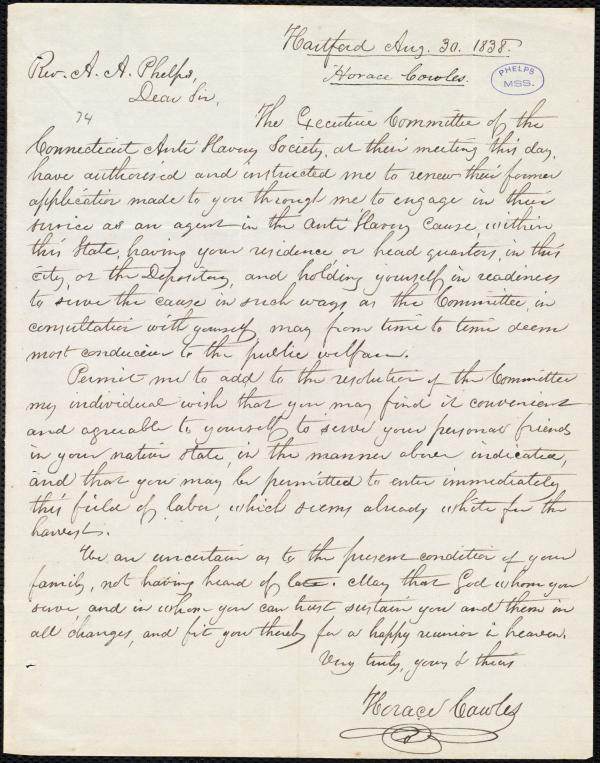 Hartford Aug. 30. 1838.
Horace Cowles.
PHELPS
MSS.
Rev. A. A. Phelps,
Dear Sir,
74
The Executive Committee of the
Connecticut Anti Slavery Society, at their meeting this day,
have authorised and instructed me to renew their former
application made to you through me to engage in their
service as an agent in the Anti Slavery cause within
this State, having your residence or head quarters, in this
city, or the Depository, and holding yourself in readiness
to serve the cause in such ways as the Committee, in
consultation with yourself may from time to time deem
most conducive to the public welfare.
Permit me to add to the resolution of the Committee
my individual wish that you may find it convenient
and agreeable to yourself to serve your personal friends
in your native State, in the manner above indicated,
and that you may be permitted to enter immediately
this field of labor, which seems already white for the
harvest.
We are uncertain as to the present condition of your
family, not having heard of late. May that God whom you
serve and in whom you can trust sustain you and them in
all changes, and fit you thereby for a happy reunion in heaven.
Very truly, yours & theirs
Horace Cowles